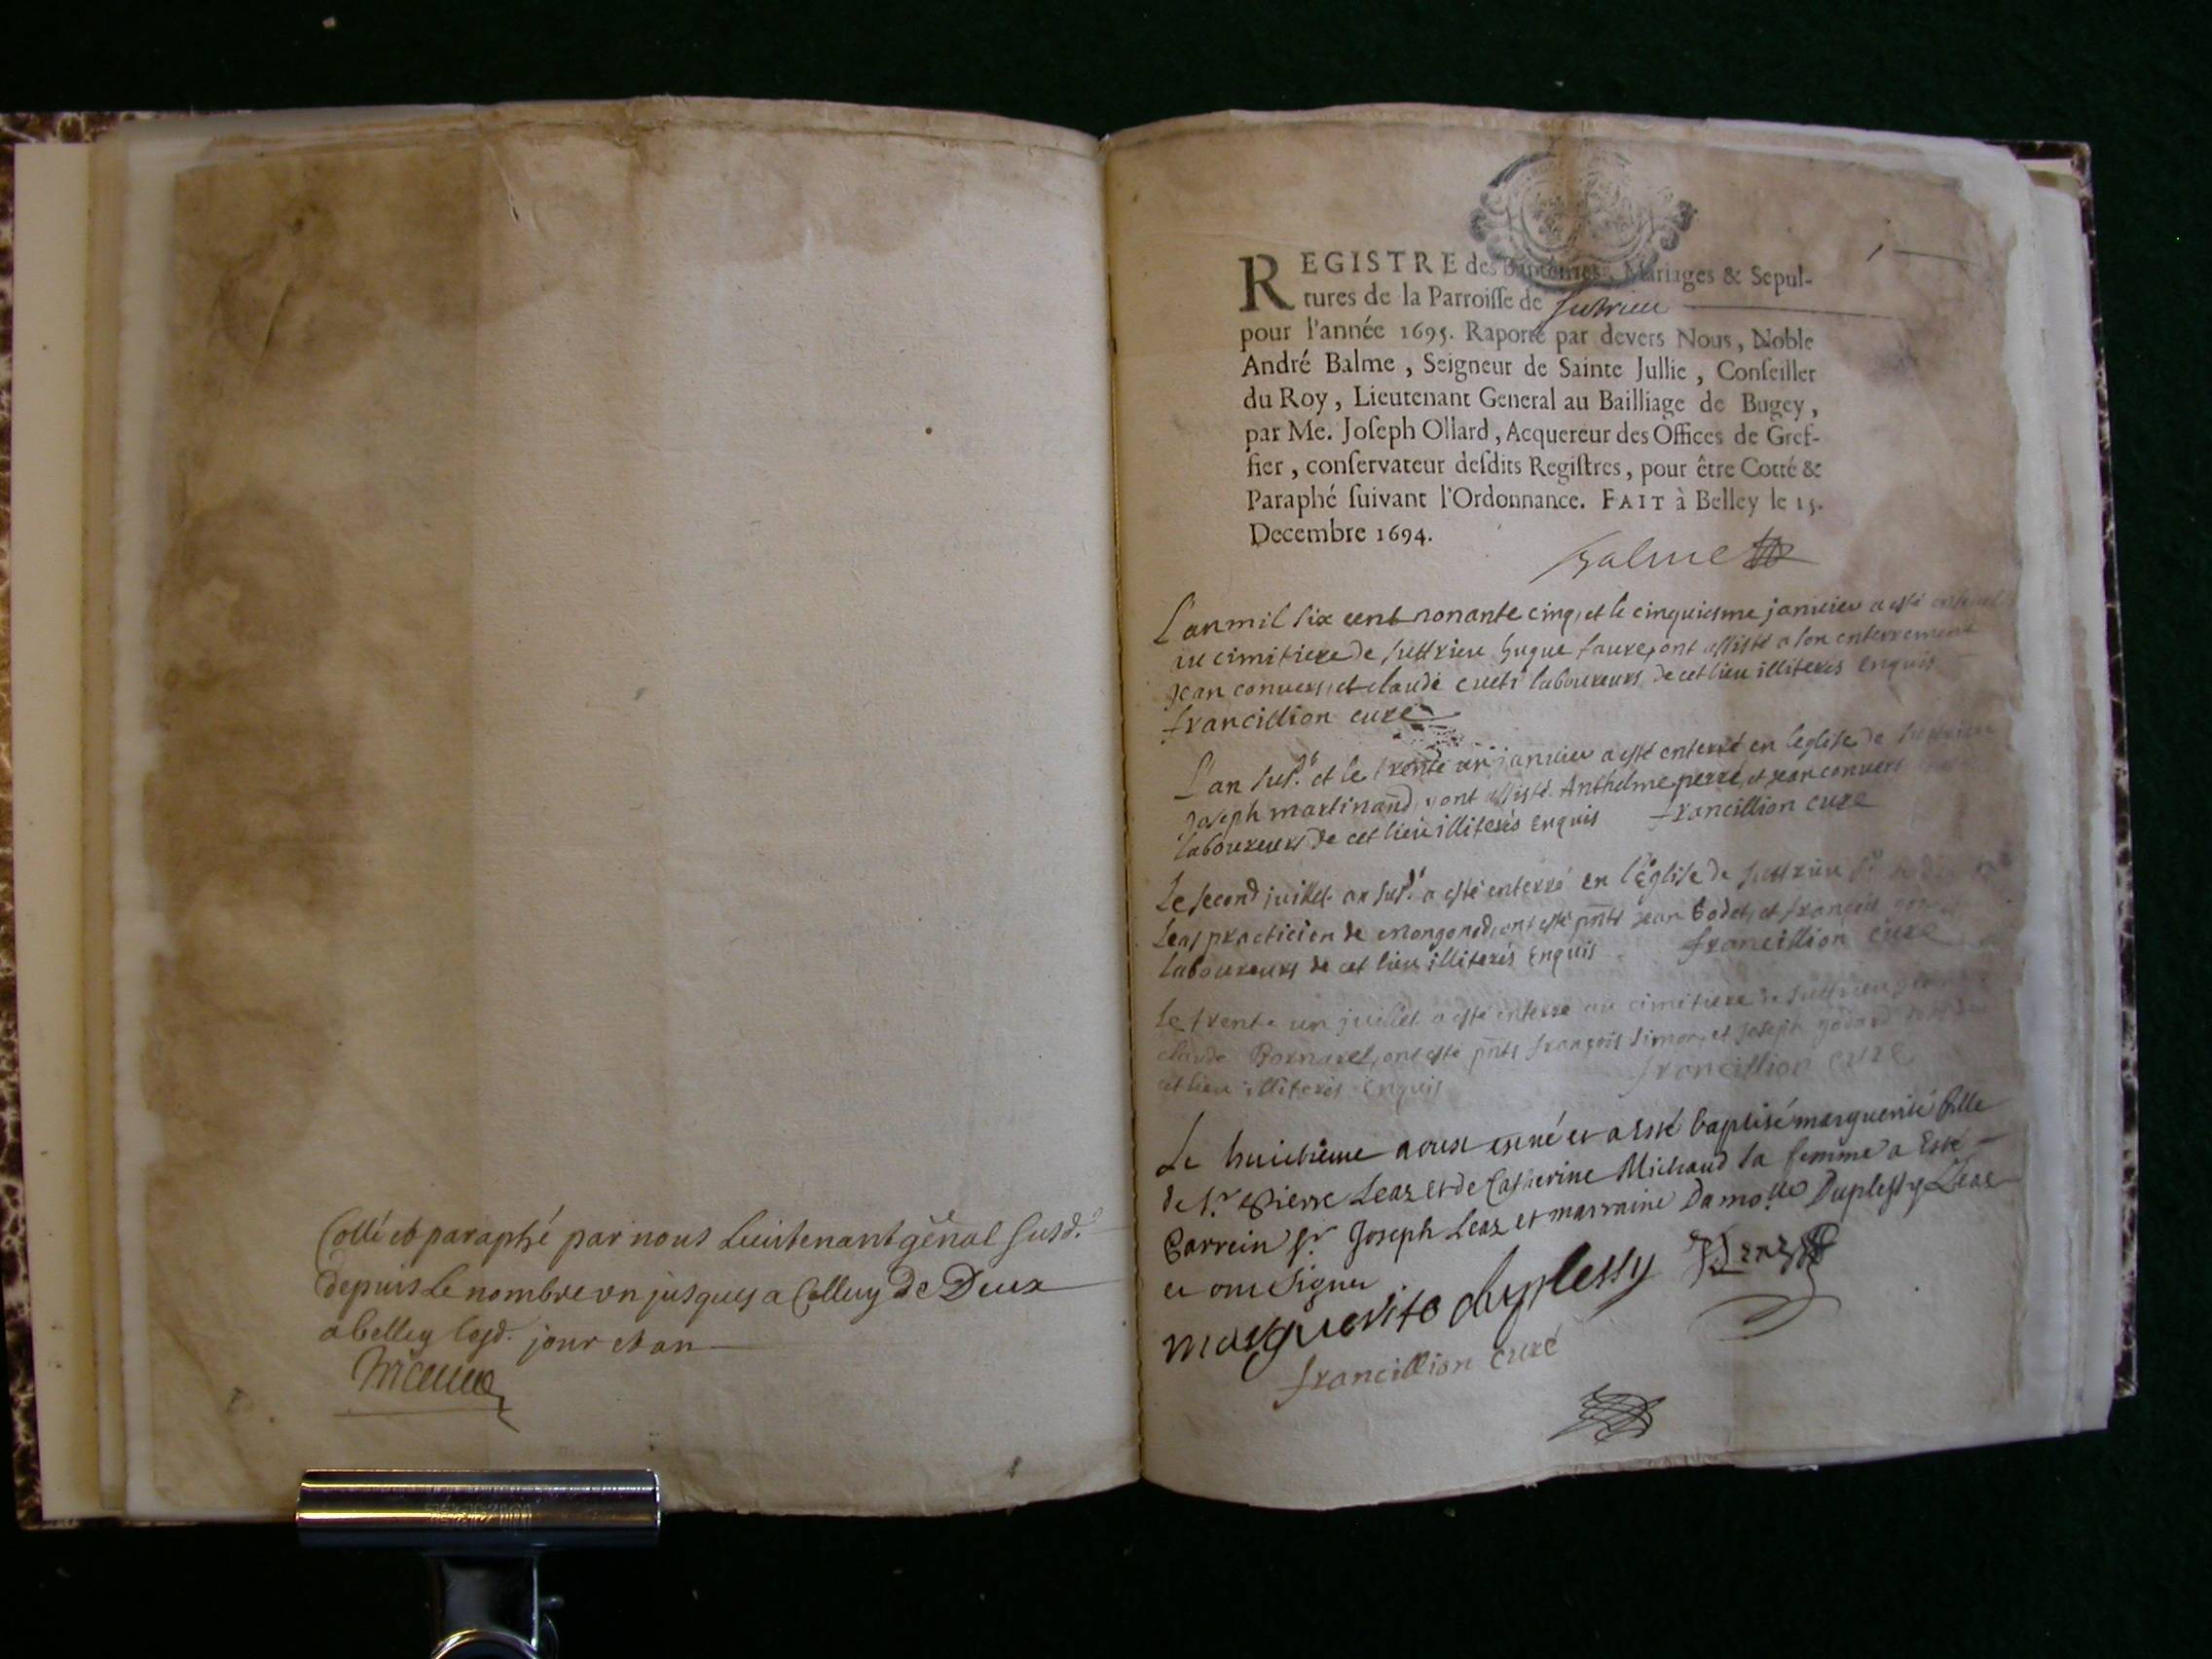 Cotté et paraphé par nous Lieutenant gñéal susd.
depuis le nombre un jusques a Celluy de Deux
a belley lesd. jour et an
1
REGISTRE des Baptêmes, Mariages & Sepul-
tures de la Parroisse de Sutrieu
pour l'année 1695. Raporté par devers Nous, Noble
André Balme, Seigneur de Sainte Jullie, Conseiller
du Roy, Lieutenant General au Bailliage de Bugey,
par Me. Joseph Ollard, Acquereur des Offices de Gref-
fier, conservateur desdits Registres, pour être Cotté &
Paraphé suivant l'Ordonnance. FAIT à Belley le 15.
Decembre 1694.
Balme
L'an mil six cent nonante cinq, et le cinquiesme janvier a esté
au cimitiere de suttrieu hugue faure, ont assisté a son enterrement
Jean convers, et claude laboureurs de cet lieu illiterés enquis
francillion curé
L'an susd.t et le trente un janvier a esté enterré en l'eglise de suttrieu
Joseph martinand, ont assisté Anthelme perré, et jean convers
laboureurs de cet lieu illiterés enquis francillion curé
Le second juillet an susd.t a esté enterré en l'Eglise de suttrieu Sr
Leaz practicien de mongonod, ont esté pñts jean Bodet, et françois
laboureurs de cet lieu illiterés enquis francillion curé
Le trente un juillet a esté enterré au cimitiere de suttrieu
claude Bornarel, ont esté pñts françois simon, et joseph godard
cet lieu illiterés enquis francillion curé
Le huictième aoust est né et a esté baptisé marguerite fille
de Sr. Pierre Leaz et de Catherine Michaud sa femme a esté
Parrein Sr Joseph Leaz et marraine Damolle Duplessy Leaz
et ont signer
marguerite duplessy J Leaz
francillion curé